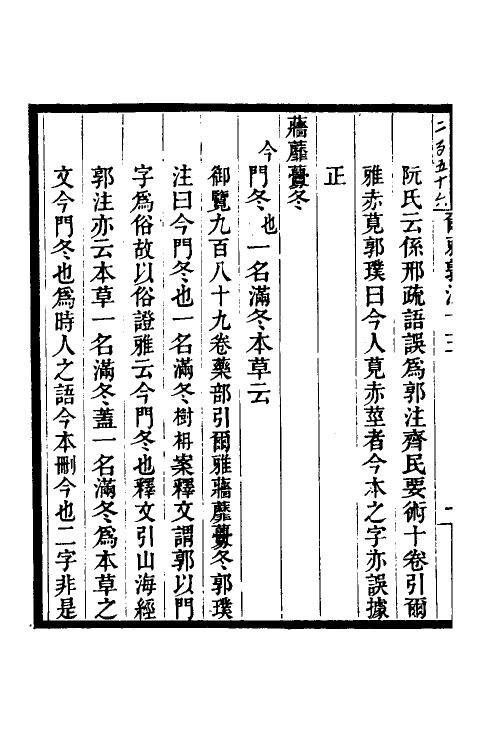 二百五十六
阮氏云係邢疏語誤爲郭注齊民要術十卷引爾
雅赤莧郭璞曰今人莧赤莖者今本之字亦誤據
正
蘠蘼虋冬
今門冬也一名滿冬本草云
御覽九百八十九卷藥部引爾雅蘠蘼虋冬郭璞
注曰今門冬也一名滿冬樹枏案釋文謂郭以門
字爲俗故以俗證雅云今門冬也釋文引山海經
郭注亦云本草一名滿冬蓋一名滿冬爲本草之
文今門冬也爲時人之語今本刪今也二字非是